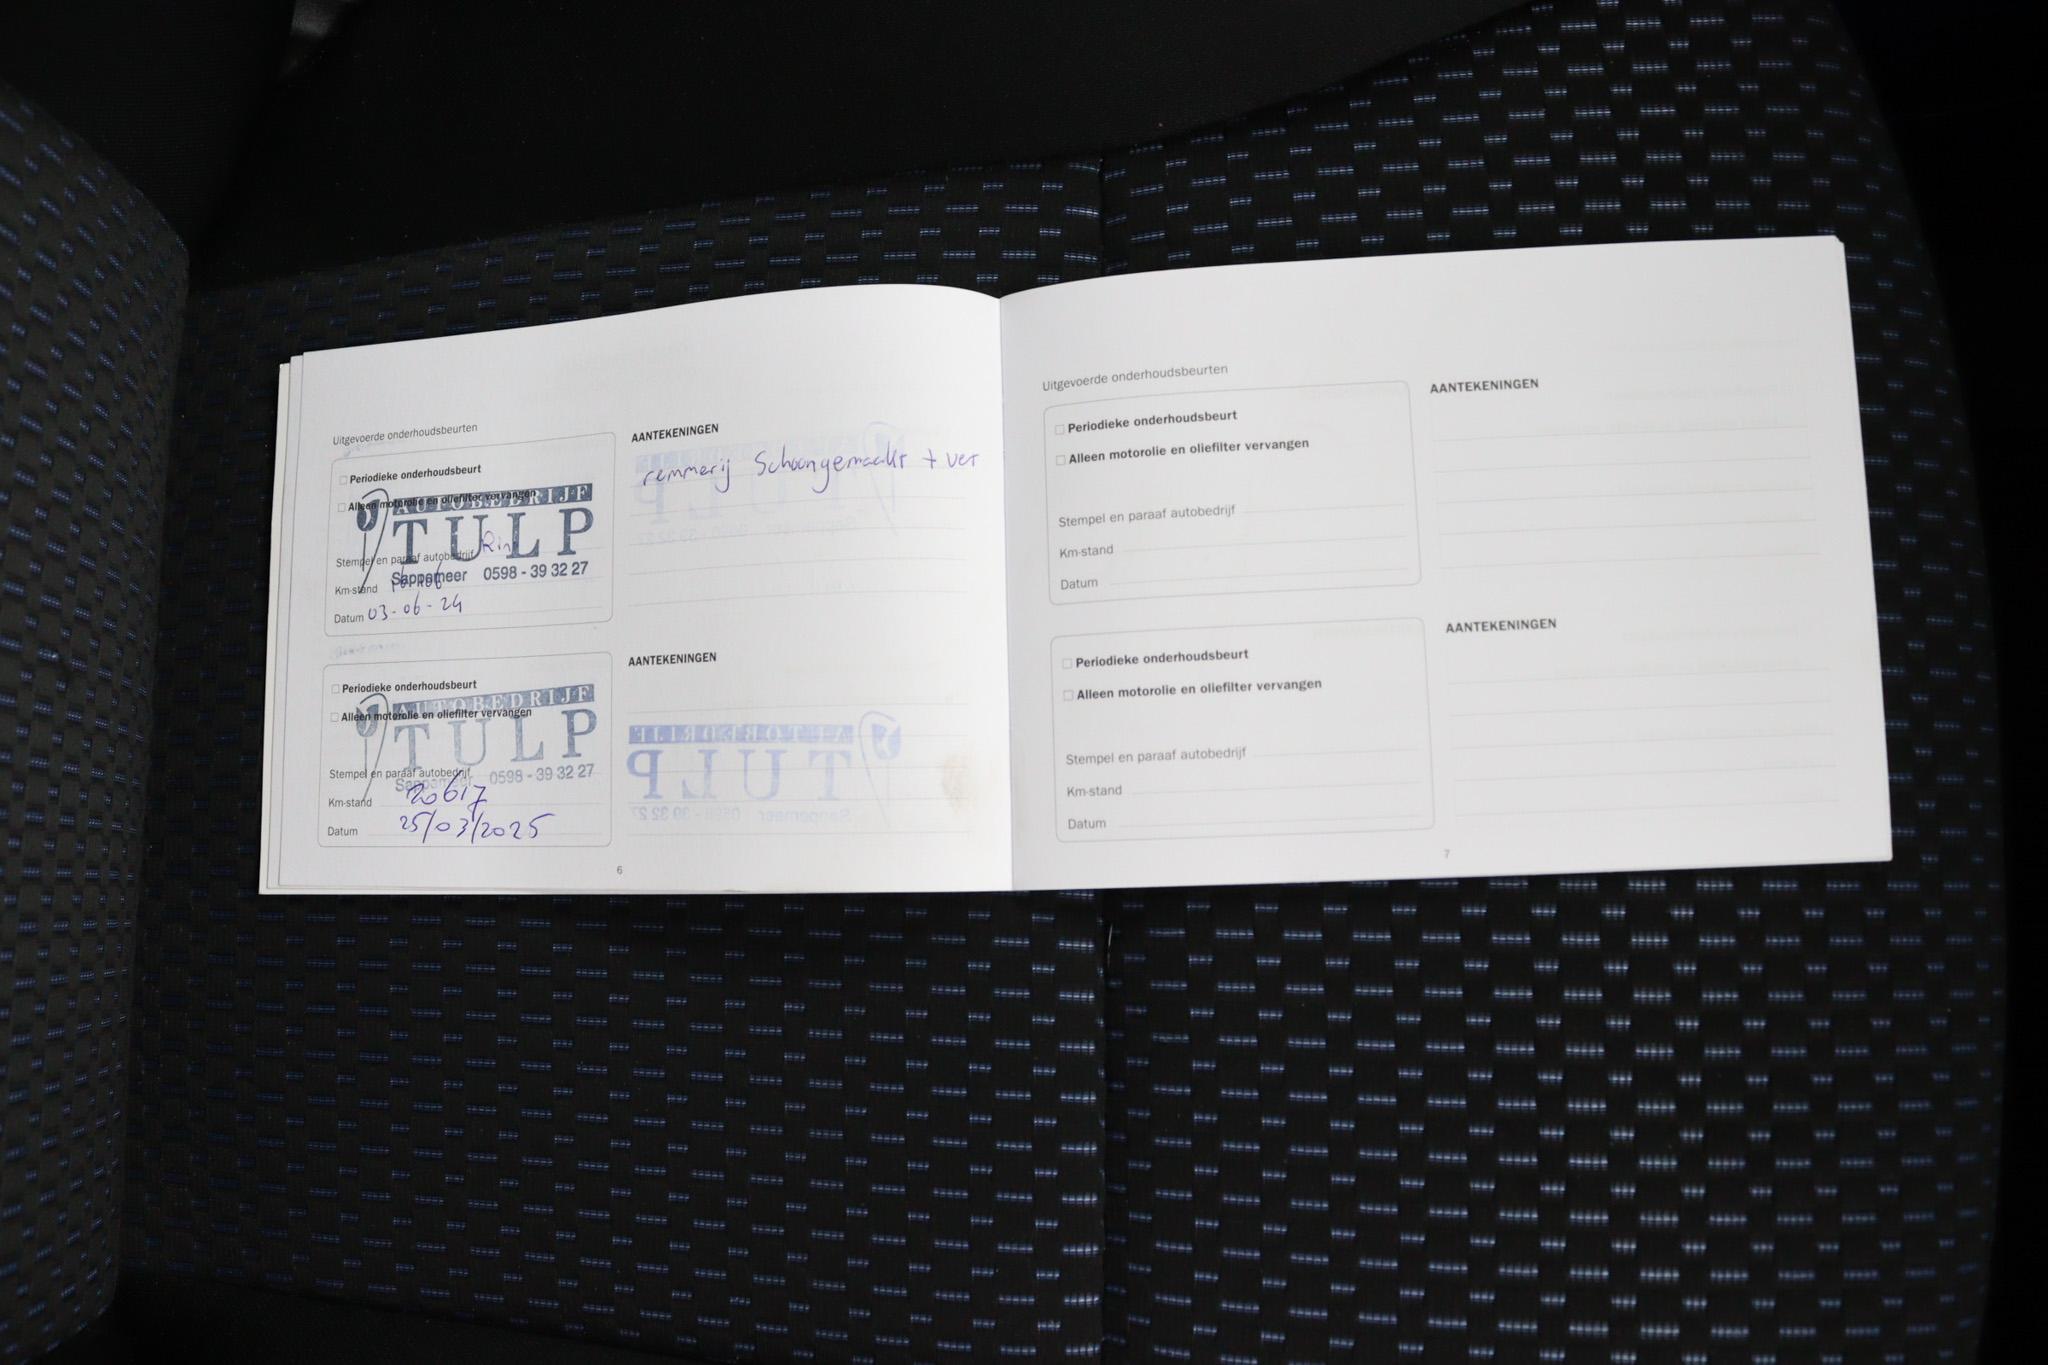 Uitgevoerde onderhoudsbeurten
Periodieke onderhoudsbeurt
Alleen motorolie en oliefilter vervangen
AUTOBEDRIJF
TULP
Stempel en paraaf autobedrijf
Sappemeer 0598 - 39 32 27
Km-stand
Datum 03-06-24
AANTEKENINGEN
remmerij Schoongemaakt + vet
Periodieke onderhoudsbeurt
Alleen motorolie en oliefilter vervangen
AUTOBEDRIJF
TULP
Stempel en paraaf autobedrijf
Sappemeer 0598 - 39 32 27
Km-stand 20617
Datum 25/03/2025
AANTEKENINGEN
6
Uitgevoerde onderhoudsbeurten
Periodieke onderhoudsbeurt
Alleen motorolie en oliefilter vervangen
Stempel en paraaf autobedrijf
Km-stand
Datum
AANTEKENINGEN
Periodieke onderhoudsbeurt
Alleen motorolie en oliefilter vervangen
Stempel en paraaf autobedrijf
Km-stand
Datum
AANTEKENINGEN
7